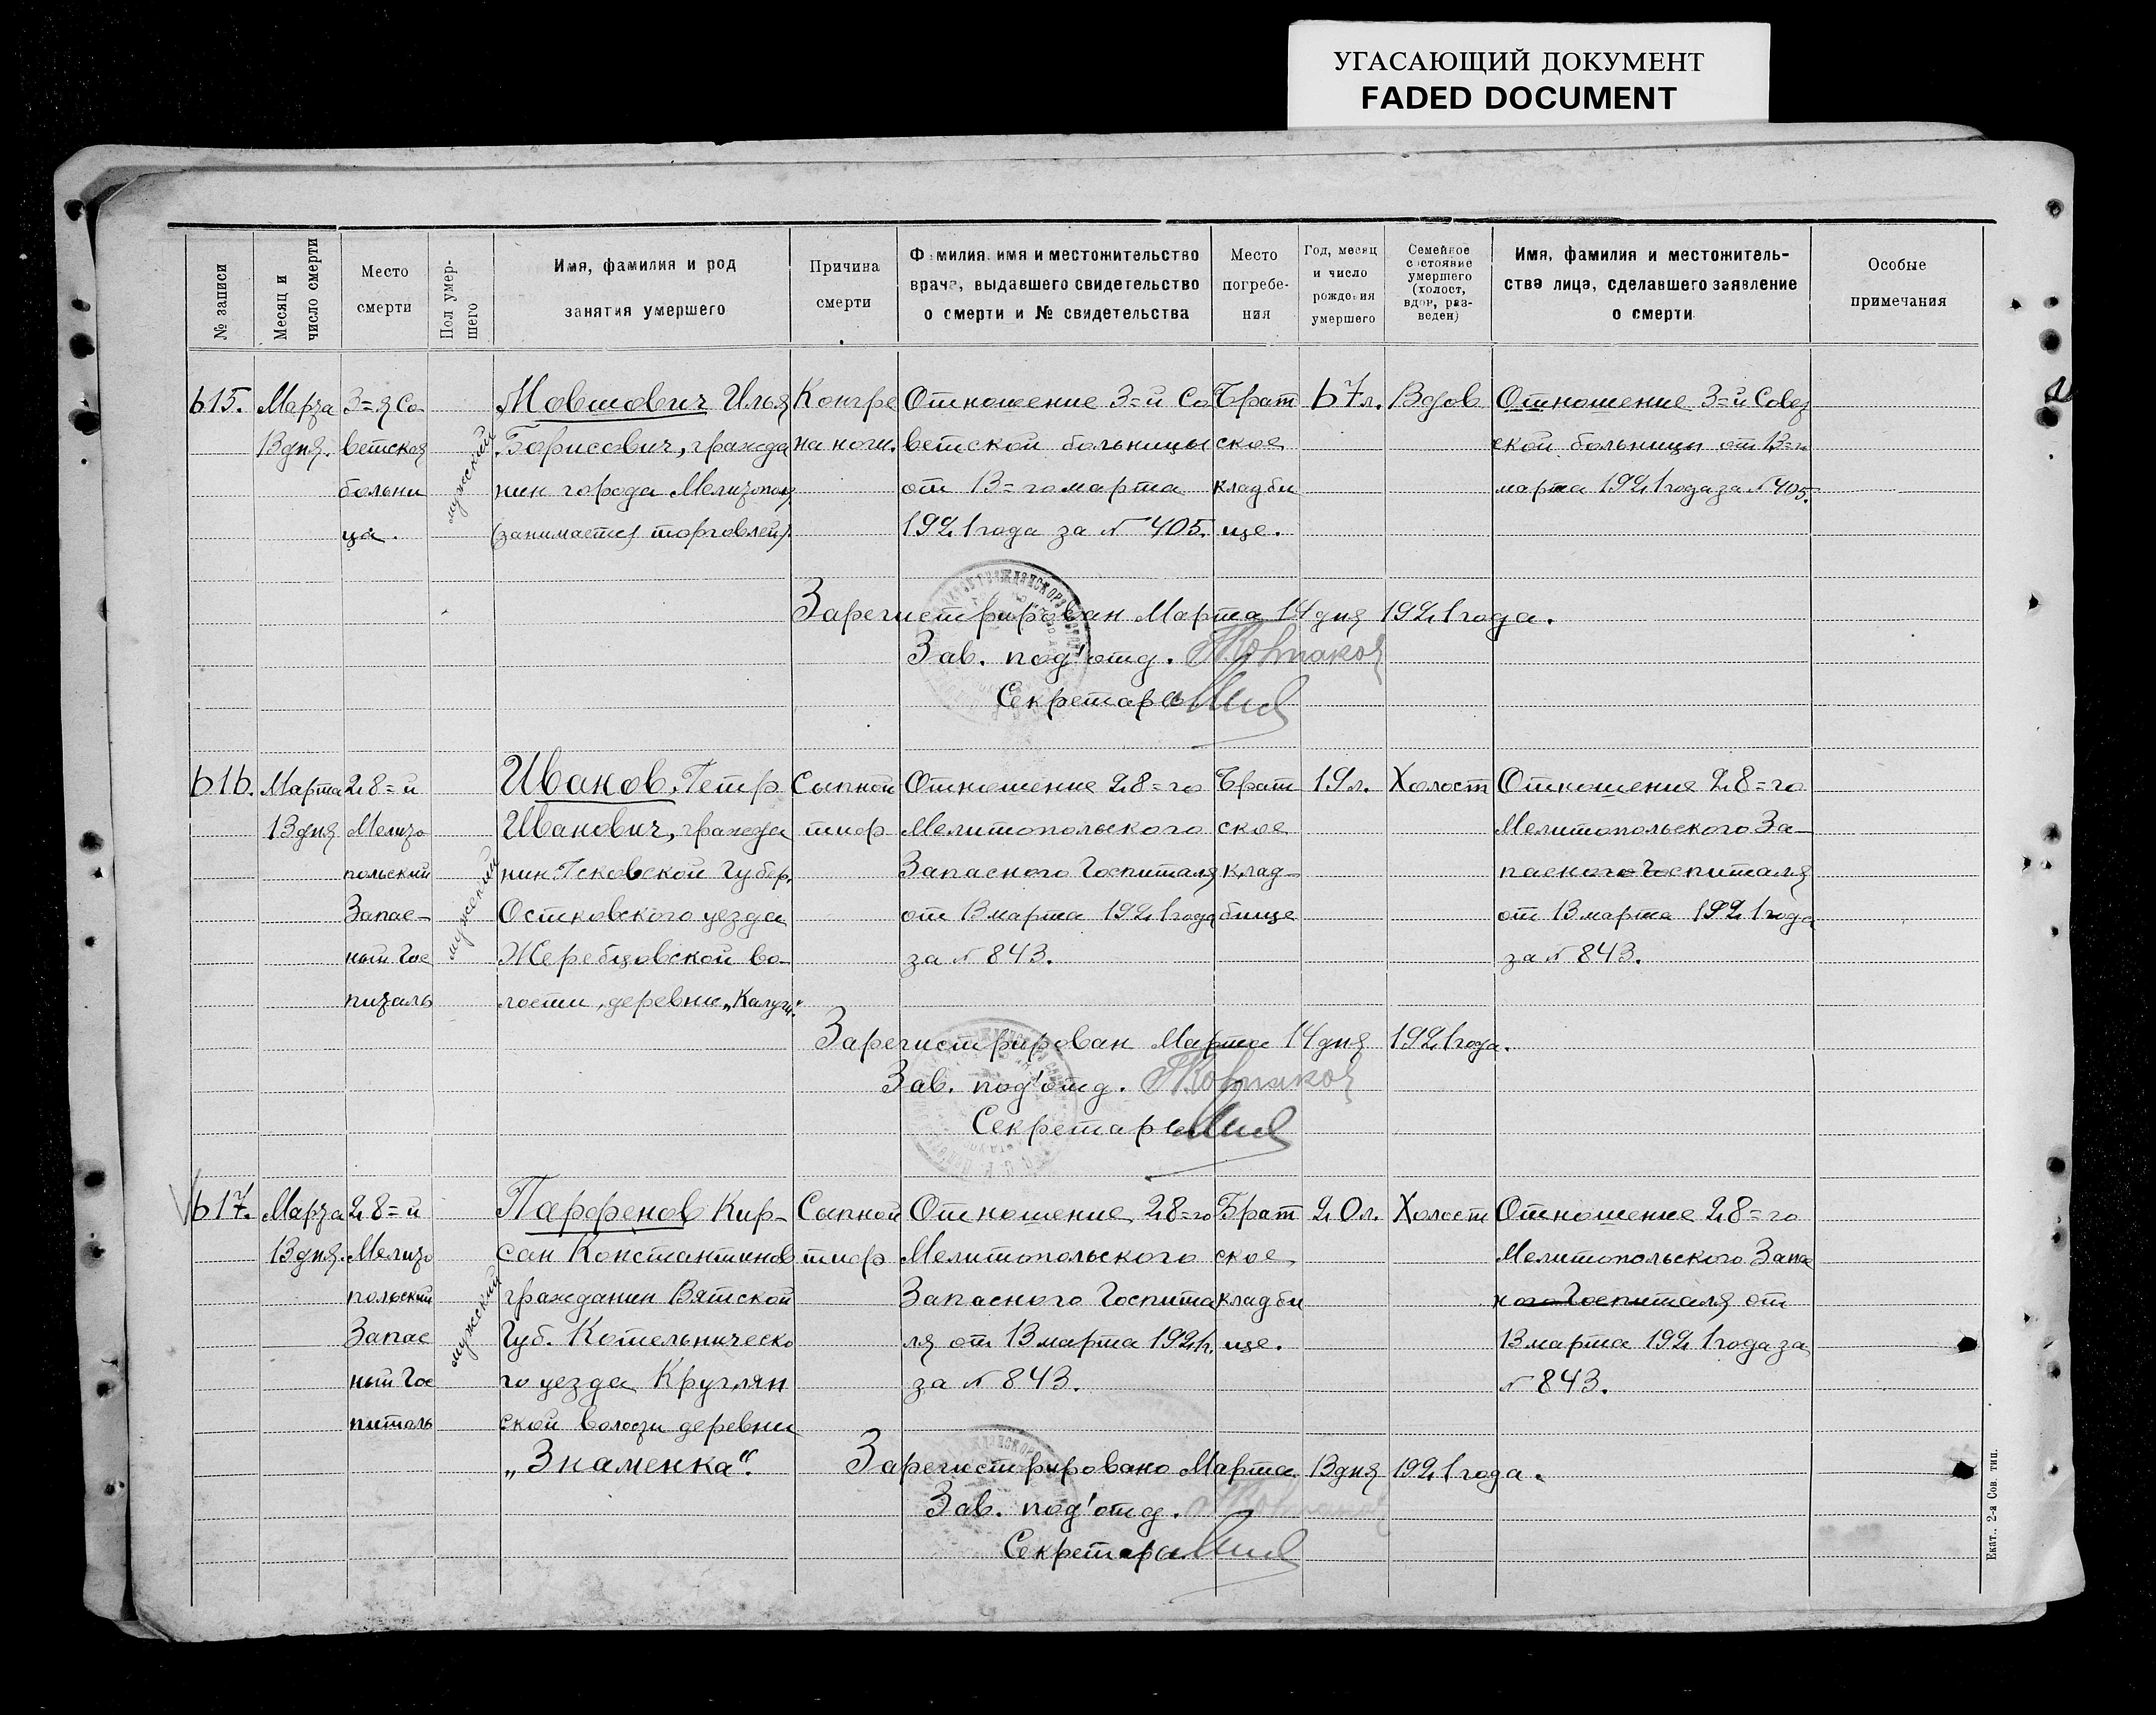 УГАСАЮЩИЙ ДОКУМЕНТ
FADED DOCUMENT
№ записи
Месяц и
число смерти
Место
смерти
Пол умер-
шего
Имя, фамилия и род
занятия умершего
Причина
смерти
Фамилия, имя и местожительство
врача, выдавшего свидетельство
о смерти и № свидетельства
Место
погребе-
ния
Год, месяц
и число
рождения
умершего
Семейное
состояние
умершего
(холост,
вдов, раз-
веден)
Имя, фамилия и местожитель-
ства лица, сделавшего заявление
о смерти
Особые
примечания
615.
Марта
13 дня.
3=я Со
ветская
больни
ца.
мужский
Мовшович Илья
Борисович, гражда
нин города Мелитополя
(занимается торговлей).
Кангре
на ноги.
Отношение 3=й Со
ветской больницы
от 13=го марта
1921 года за № 405.
Брат
ское
кладби
ще.
67 л.
Вдов
Отношение 3=й Совет
ской больницы от 13=го
марта 1921 года за № 405.
Зарегистрирован Марта 14 дня 1921 года.
Зав. под'отд.
Секретарь
616.
Марта
13 дня
28=й
Мелито
польский
Запас-
ный Гос
питаль
мужский
Иванов, Петр
Иванович, гражда
нин Псковской Губер.
Остковского уезда
Жеребцовской во-
лости, деревни „Калуги“.
Сыпной
тиф
Отношение 28=го
Мелитопольского
Запасного Госпиталя
от 13 марта 1921 года
за № 843.
Брат
ское
клад-
бище
19 л.
Холост
Отношение 28=го
Мелитопольского За-
пасного Госпиталя
от 13 марта 1921 года
за № 843.
Зарегистрирован Марта 14 дня 1921 года.
Зав. под'отд.
Секретарь
617.
Марта
13 дня.
28=й
Мелито
польский
Запас
ный Гос
питаль
мужский
Парфенов Кир-
сан Константинов
гражданин Вятской
Губ. Котельническо
го уезда Круглян
ской волости деревни
„Знаменка“.
Сыпной
тиф
Отношение 28=го
Мелитопольского
Запасного Госпита
ля от 13 марта 1921 г.
за № 843.
Брат
ское
кладби
ще.
20 л.
Холост
Отношение 28=го
Мелитопольского Запас
ного Госпиталя от
13 марта 1921 года за
№ 843.
Зарегистрировано Марта 13 дня 1921 года.
Зав. под'отд.
Секретарь
Екат.. 2-я Сов. тип.